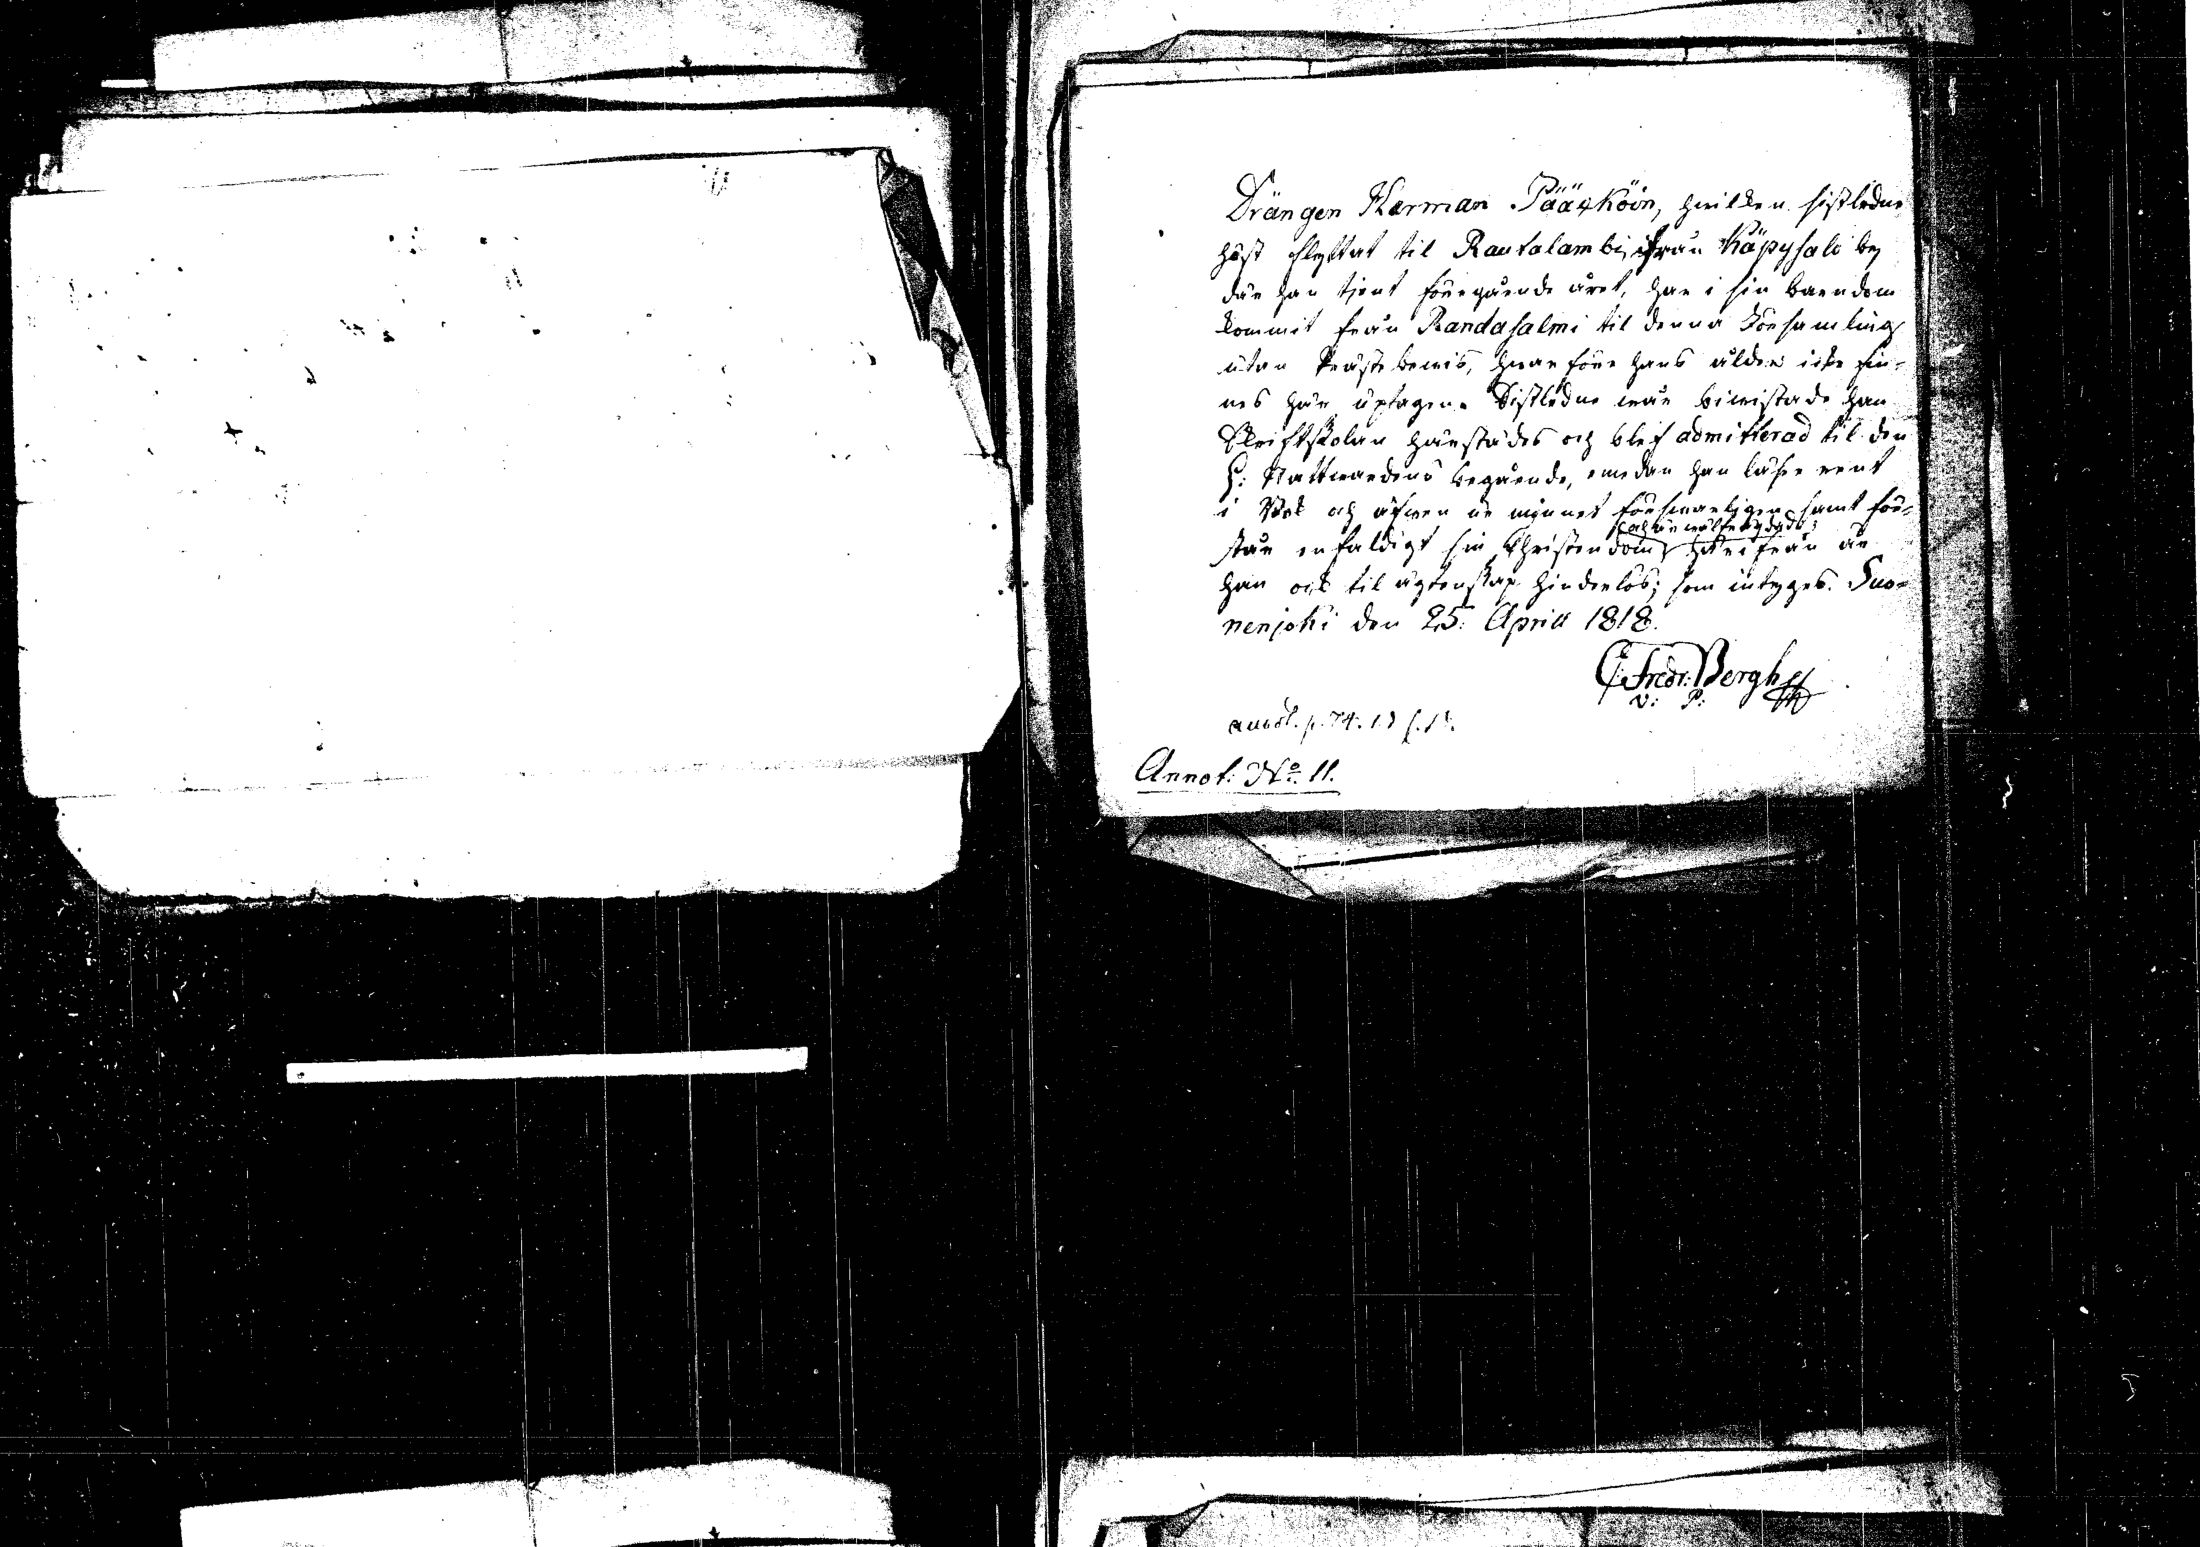 Drängen Herman Pääxköin, hwilken sistledne
höst flyttat til Rautalambi, ifrån Käpysalo by
där han tjent föregående året, har i sin barndom
kommit från Randasalmi til denna Församling
utan Prästebewis, hwarföre hans ålder icke fin-
nes här uptagen. Sistledne wår biwistade han
Skriftskolan härstädes och blef admitterad til den
H: Nattwardens begående, emedan han läser rent
i Bok och äfwen ur minnet förswarligen samt för-
står enfaldigt sin Christendom, härifrån är
han ock til ägtenskap hinderlös; som intyges. Suo-
nenjoki den 25: April 1818.
C: Fredr: Bergh
v: P:
Annot: No 11.